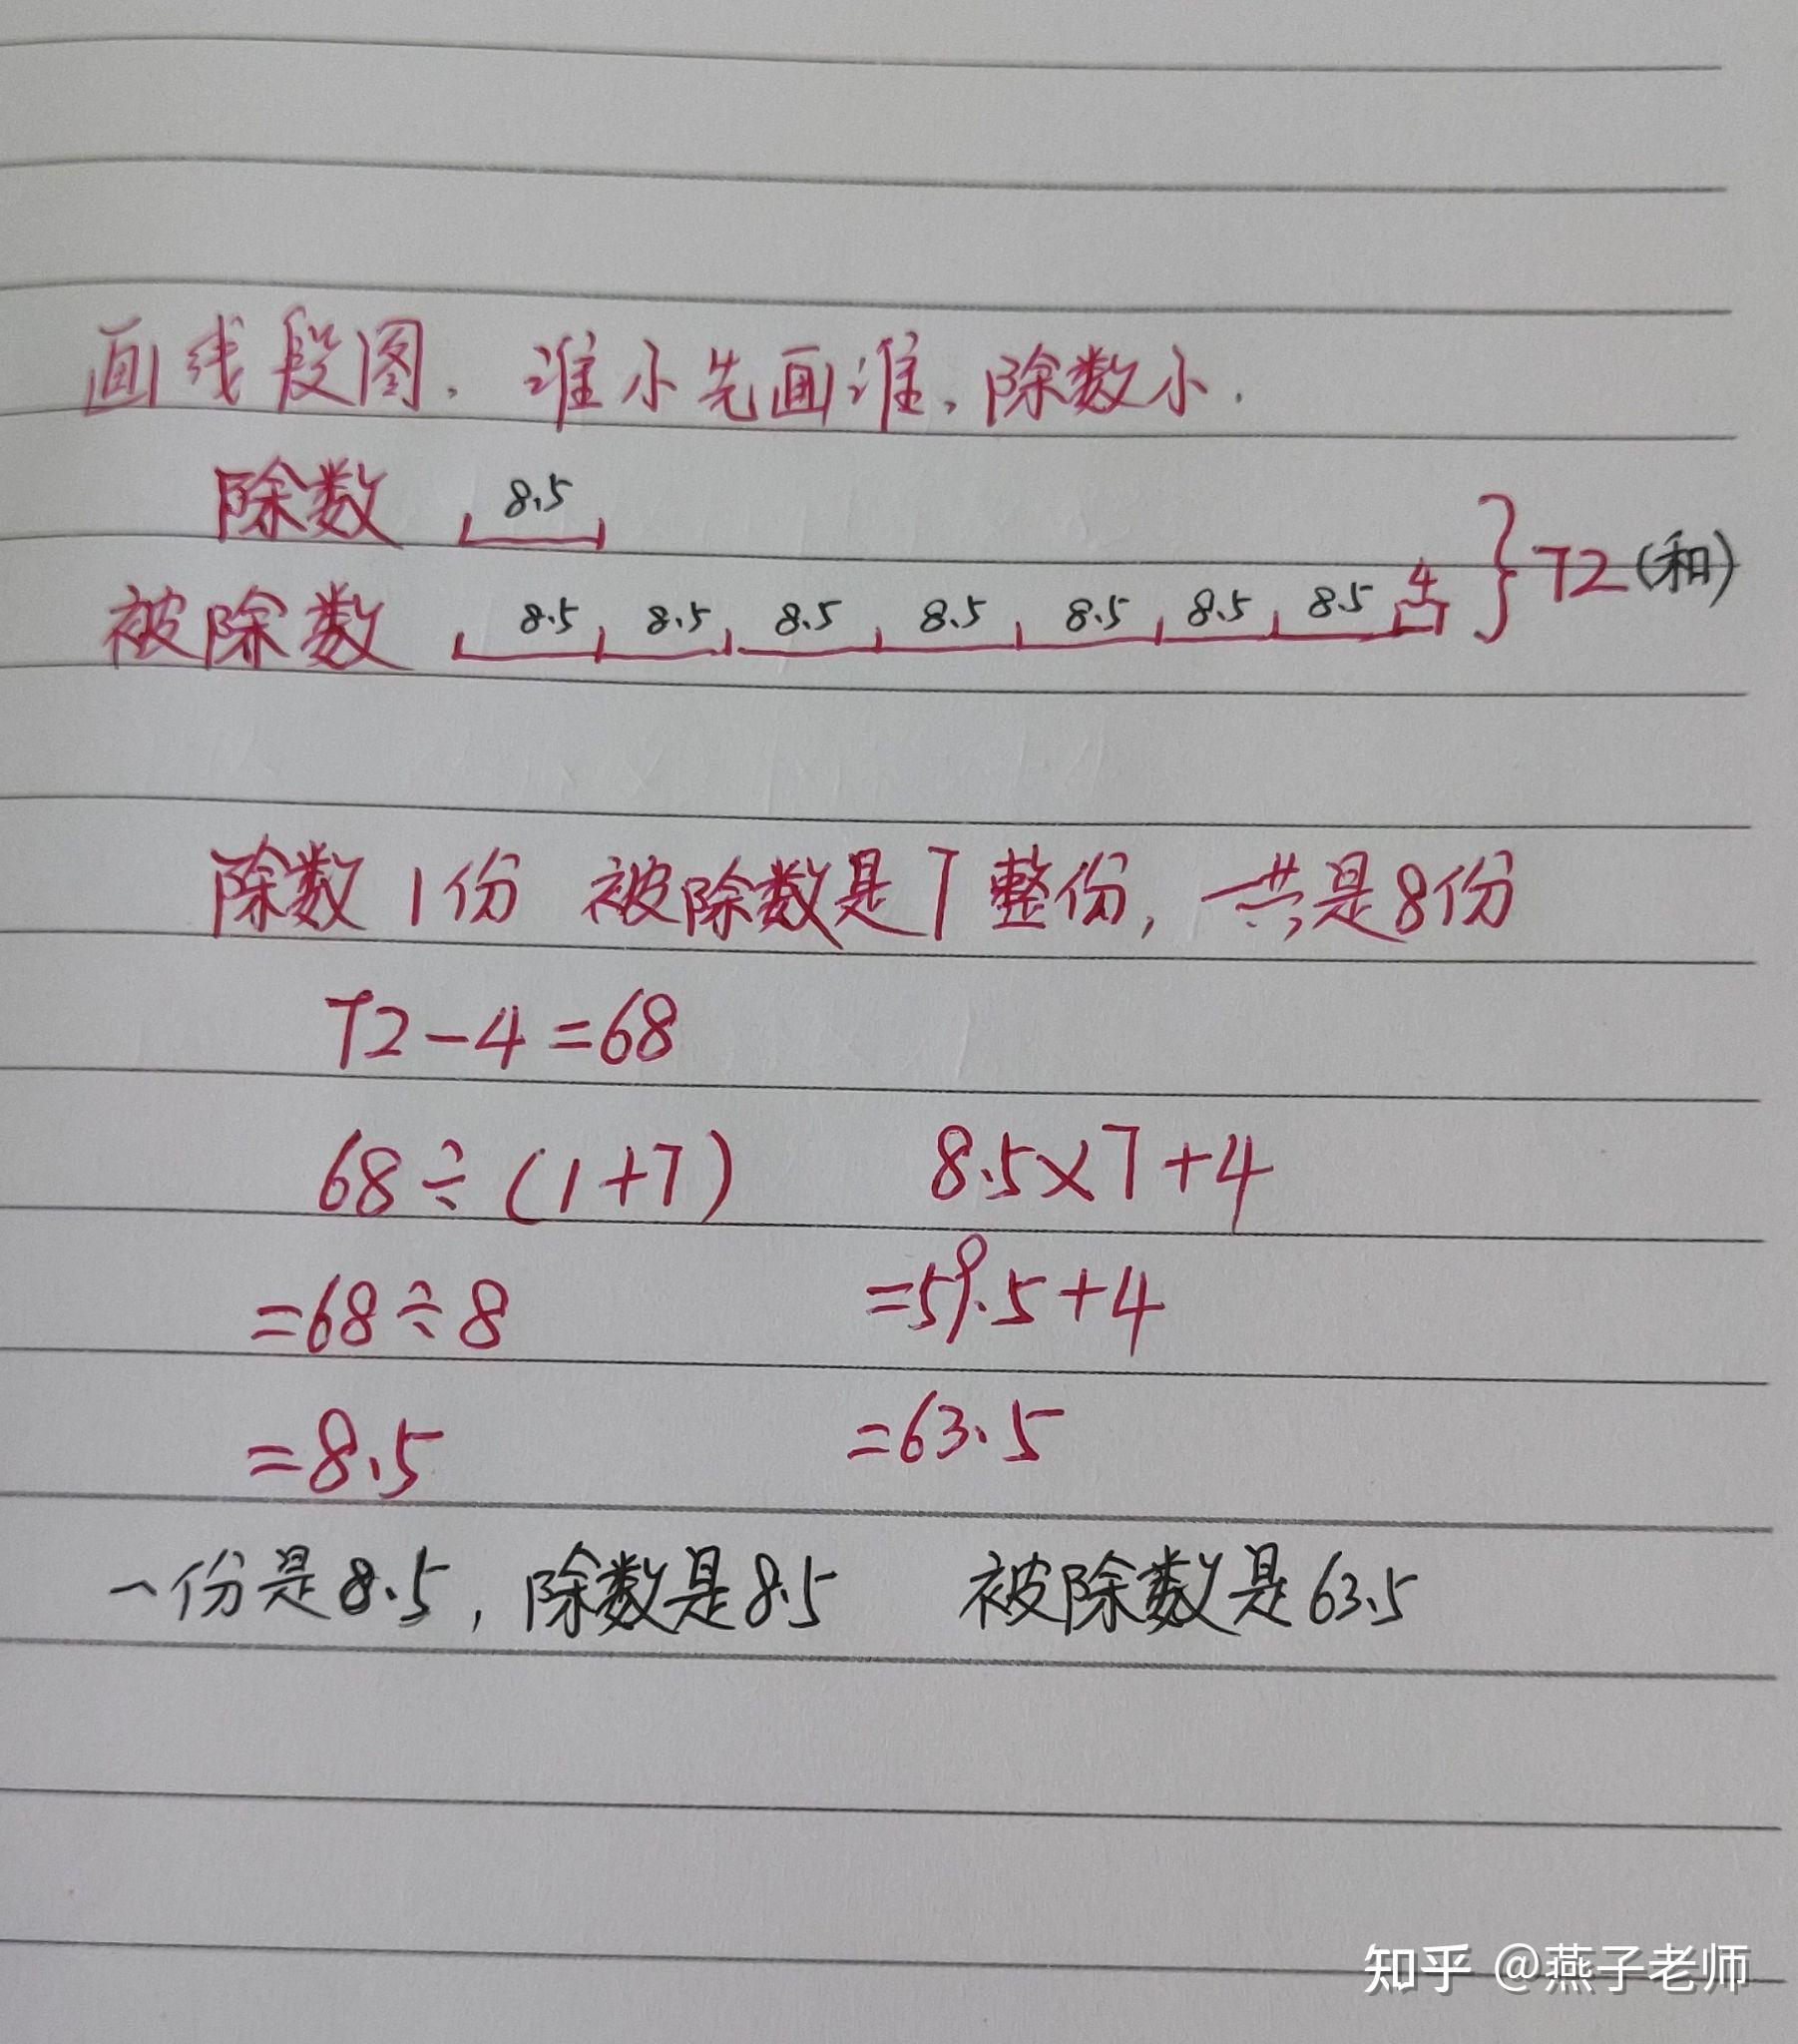 画线段图.谁小先画谁,除数小.
除数 8.5
被除数 8.5 8.5 8.5 8.5 8.5 8.5 8.5 4 }72(和)
除数1份 被除数是7整份,一共是8份
72-4=68
68÷(1+7) 8.5×7+4
=68÷8 =59.5+4
=8.5 =63.5
一份是8.5,除数是8.5 被除数是63.5
知乎 @燕子老师